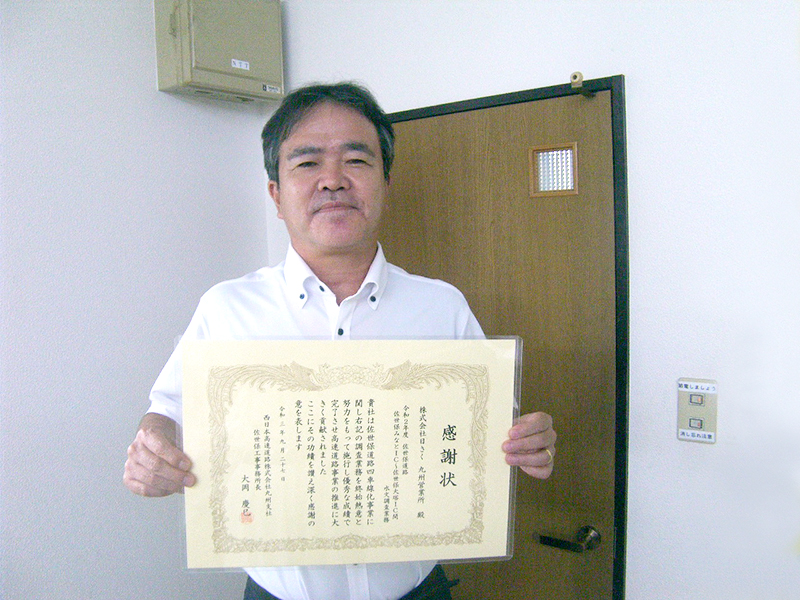 感謝状
株式会社日さく 九州営業所 殿
令和2年度 佐世保道路
佐世保みなとIC～佐世保大塔IC間
水文調査業務
貴社は佐世保道路四車線化事業に
関し右記の調査業務を終始熱意と
努力をもって施行し優秀な成績で
完了させ高速道路事業の推進に大
きく貢献されました
ここにその功績を讃え深く感謝の
意を表します
令和三年九月二十七日
西日本高速道路株式会社九州支社
佐世保工事事務所長
大岡 慶巳
節電しましょう
消し忘れ注意